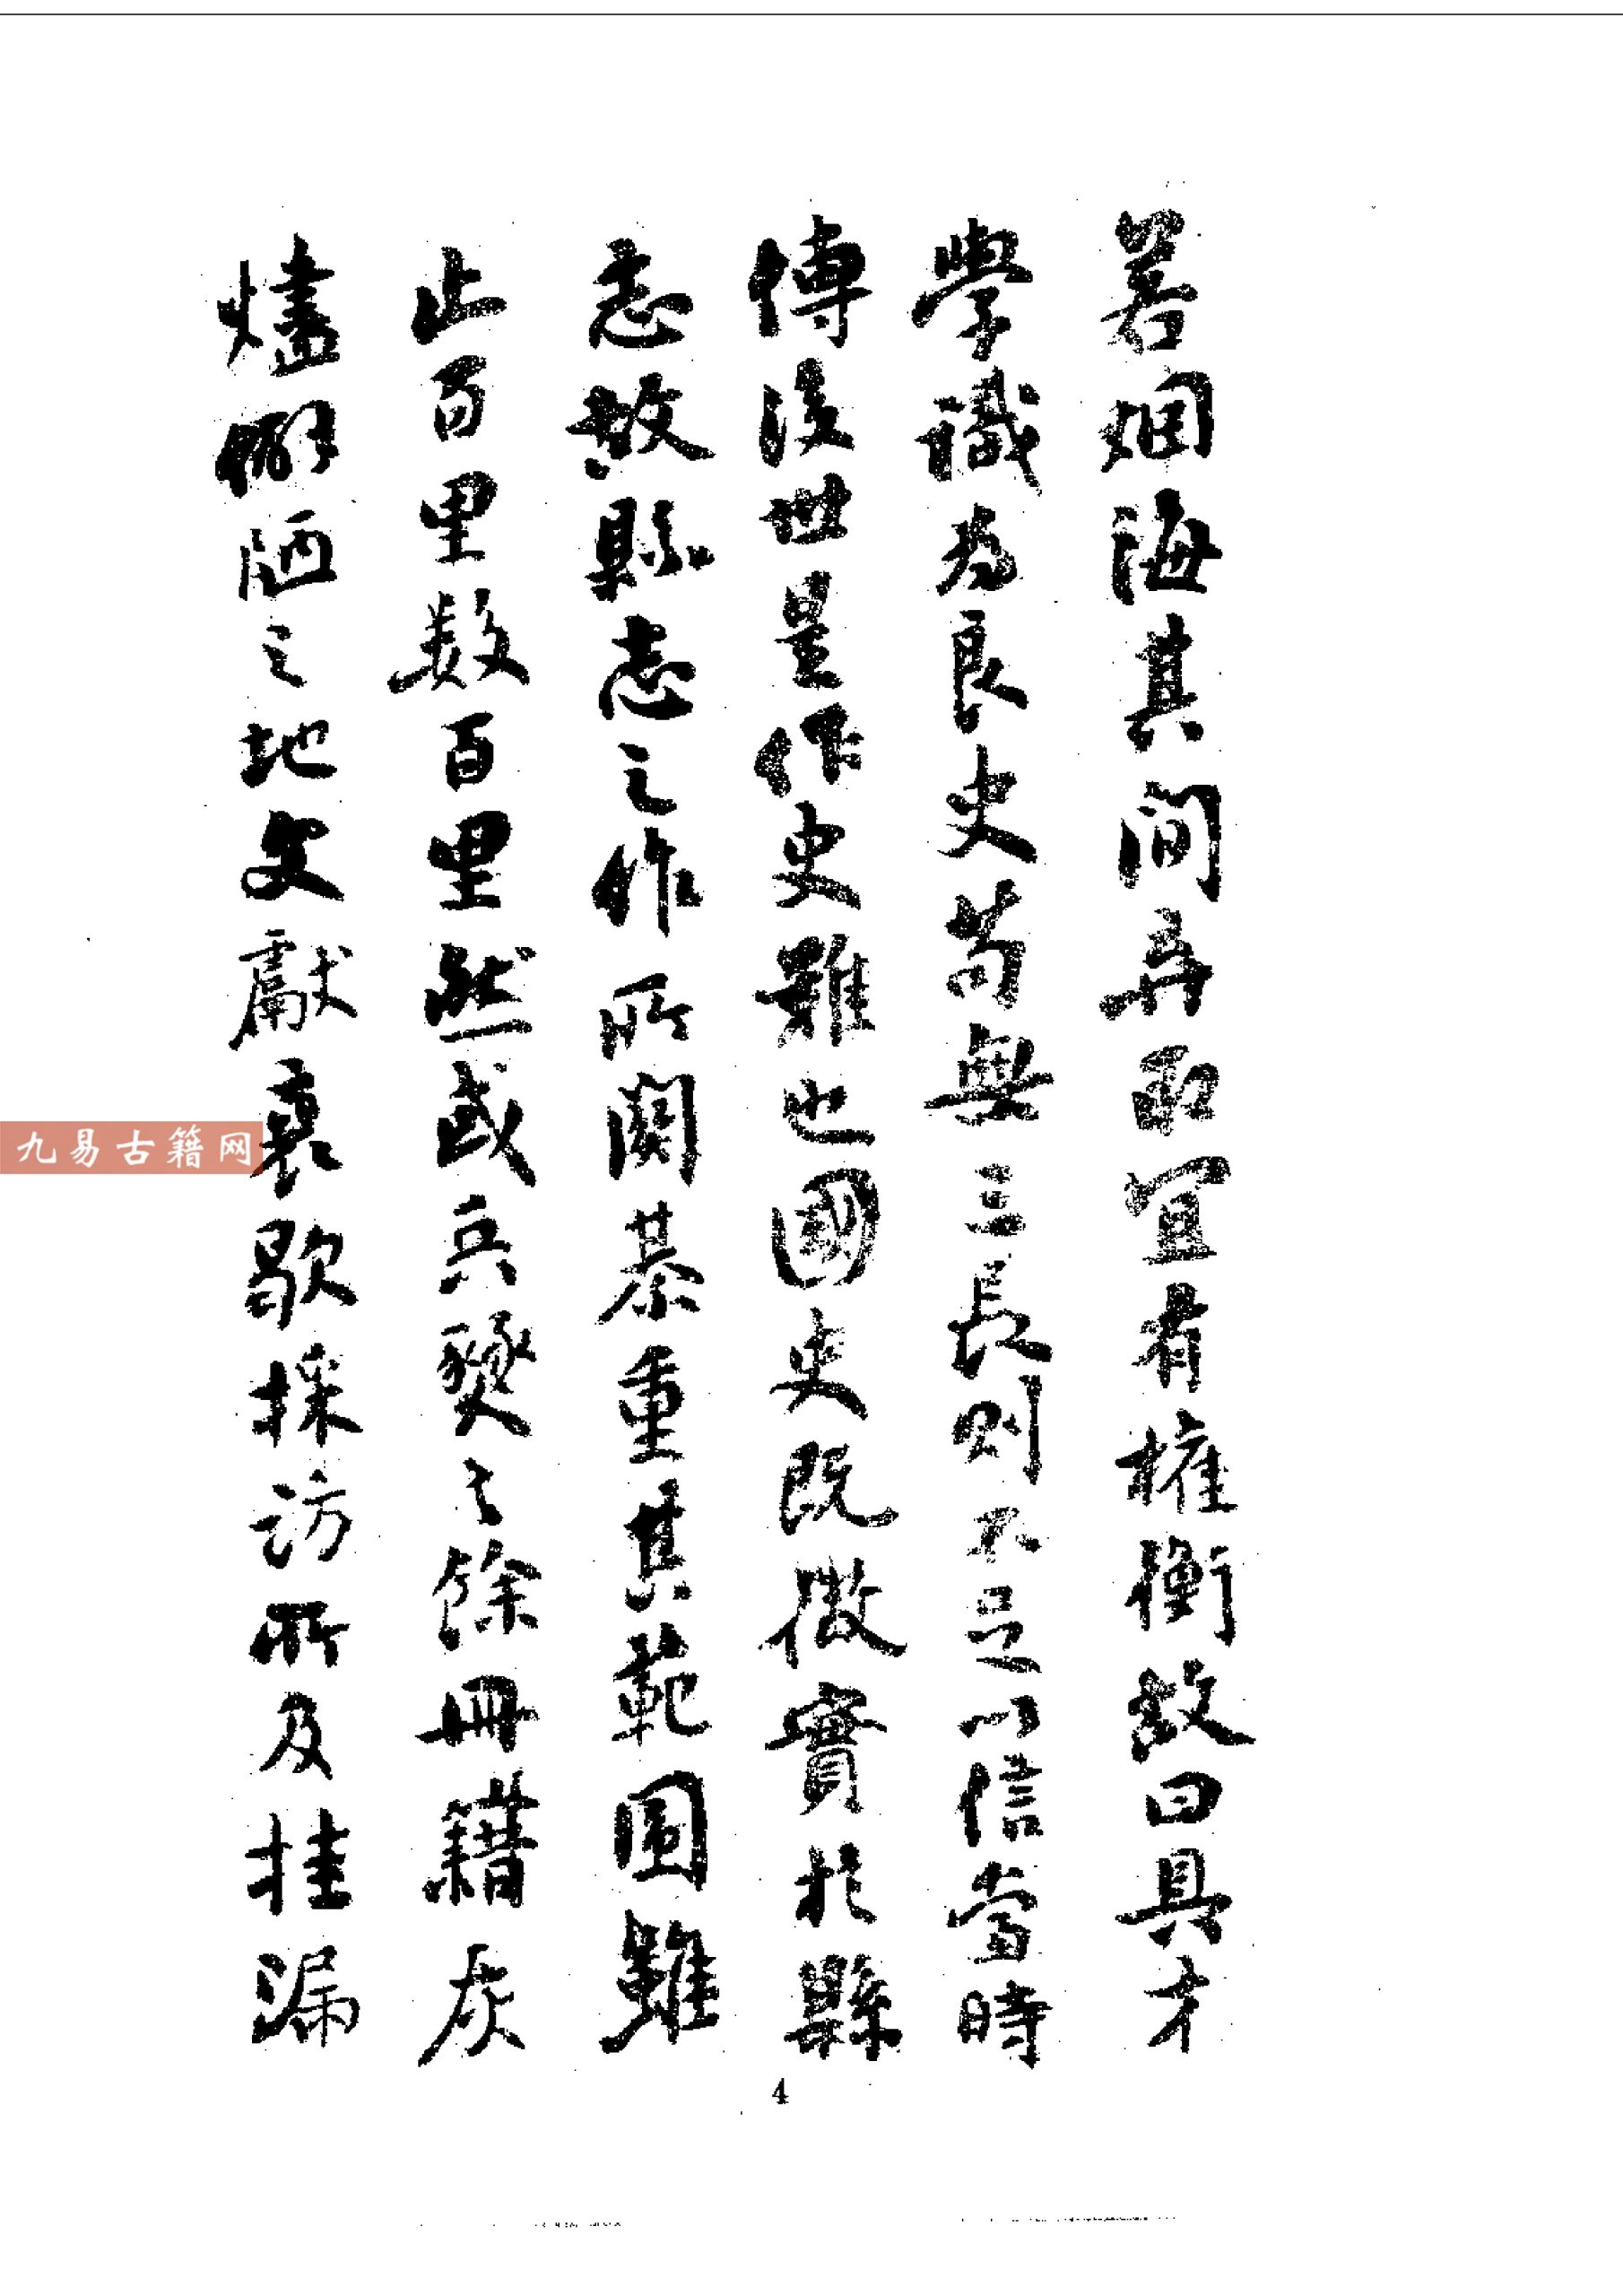 若烟海其間弃取宜有權衡故曰具才
學識為良史苟無三長則不足以信當時
傳後世是作史難也國史既徵實於縣
志故縣志之作所關綦重其範圍雖
止百里数百里然或兵燹之餘冊籍灰
燼僻陋之地文獻衷歇採訪所及挂漏
九易古籍网
4